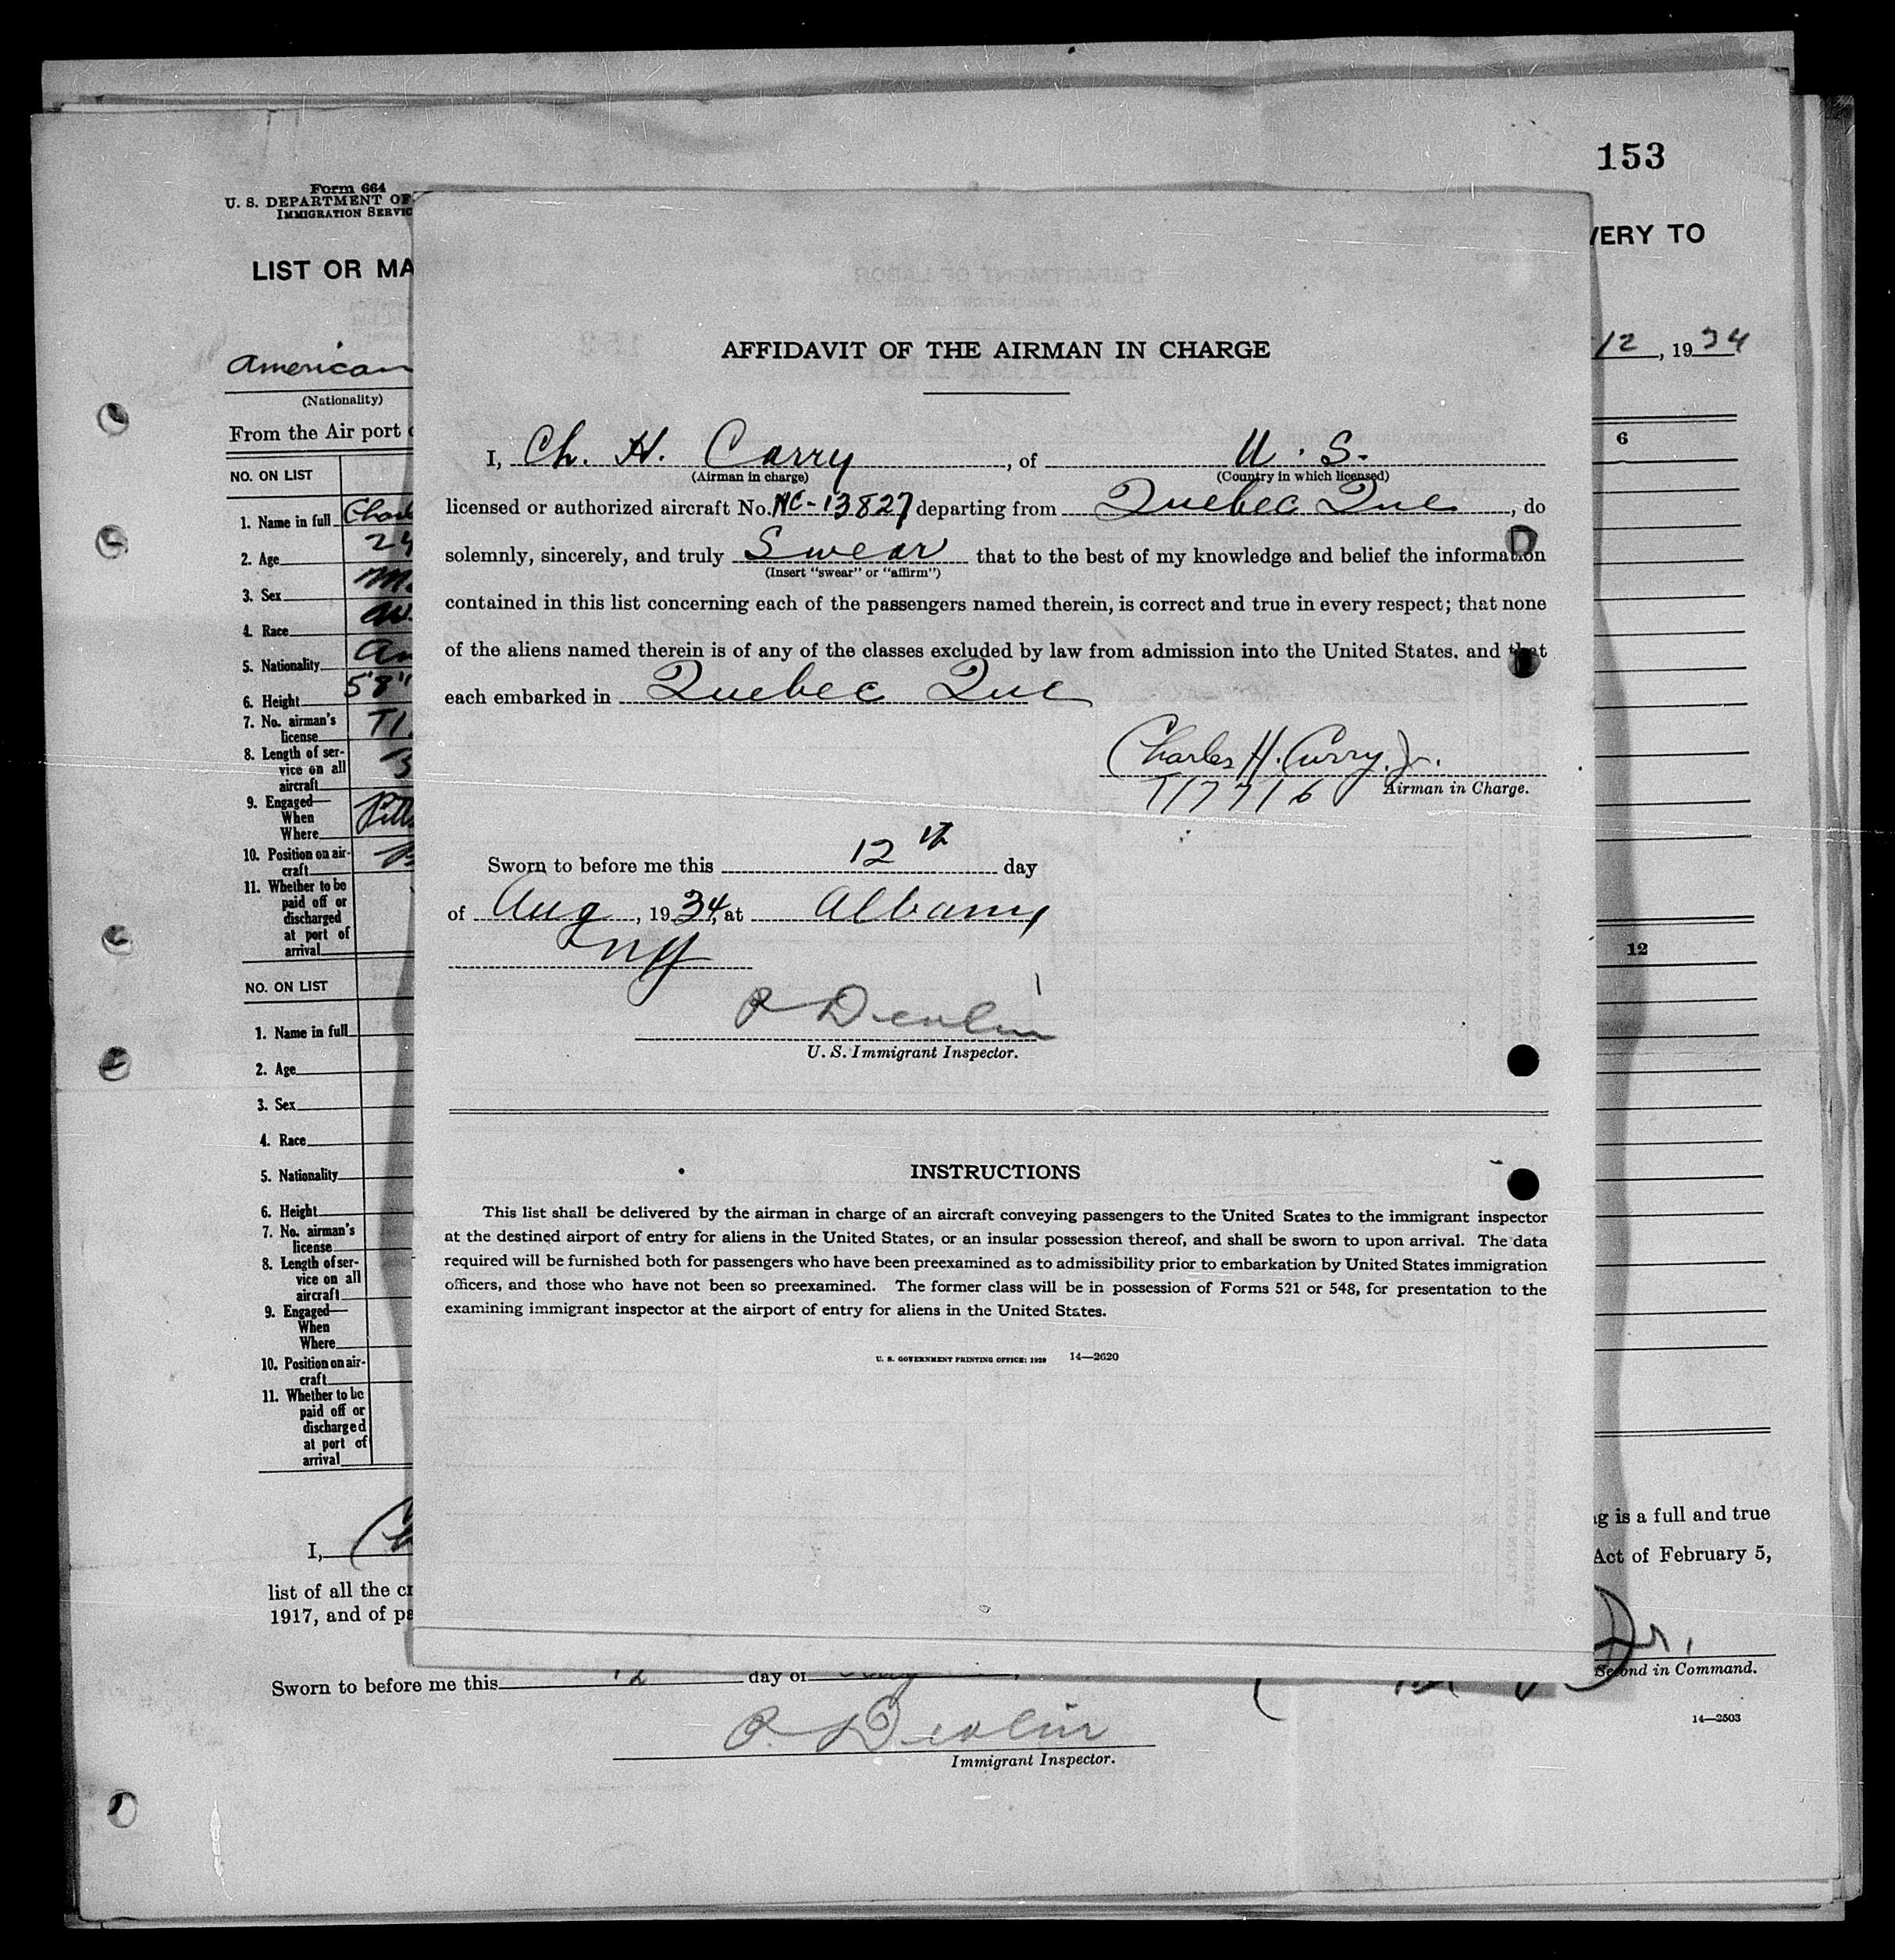 153
Form 664
U. S. DEPARTMENT OF
IMMIGRATION SERVIC
VERY TO
LIST OR MA
American
12, 1934
(Nationality)
From the Air port
NO. ON LIST
6
1. Name in full Charl
2. Age 24
3. Sex
4. Race
5. Nationality
6. Height 5'8"
7. No. airman's
license
8. Length of ser-
vice on all
aircraft
9. Engaged—
When
Where
10. Position on air-
craft
11. Whether to be
paid off or
discharged
at port of
arrival
12
NO. ON LIST
1. Name in full
2. Age
3. Sex
4. Race
5. Nationality
6. Height
7. No. airman's
license
8. Length of ser-
vice on all
aircraft
9. Engaged—
When
Where
10. Position on air-
craft
11. Whether to be
paid off or
discharged
at port of
arrival
AFFIDAVIT OF THE AIRMAN IN CHARGE
I, Ch. H. Carry, of U. S.
(Airman in charge) (Country in which licensed)
licensed or authorized aircraft No. NC-13827 departing from Quebec Que, do
solemnly, sincerely, and truly Swear that to the best of my knowledge and belief the information
(Insert "swear" or "affirm")
contained in this list concerning each of the passengers named therein, is correct and true in every respect; that none
of the aliens named therein is of any of the classes excluded by law from admission into the United States, and that
each embarked in Quebec Que
Charles H. Curry, Jr.
T17716 Airman in Charge.
Sworn to before me this 12th day
of Aug, 1934, at Albany
NY
P Devlin
U. S. Immigrant Inspector.
INSTRUCTIONS
This list shall be delivered by the airman in charge of an aircraft conveying passengers to the United States to the immigrant inspector
at the destined airport of entry for aliens in the United States, or an insular possession thereof, and shall be sworn to upon arrival. The data
required will be furnished both for passengers who have been preexamined as to admissibility prior to embarkation by United States immigration
officers, and those who have not been so preexamined. The former class will be in possession of Forms 521 or 548, for presentation to the
examining immigrant inspector at the airport of entry for aliens in the United States.
U. S. GOVERNMENT PRINTING OFFICE: 1929 14—2620
I,
g is a full and true
list of all the cr
Act of February 5,
1917, and of pa
Jr.
Second in Command.
Sworn to before me this 12 day of
14—2503
P. Devlin
Immigrant Inspector.